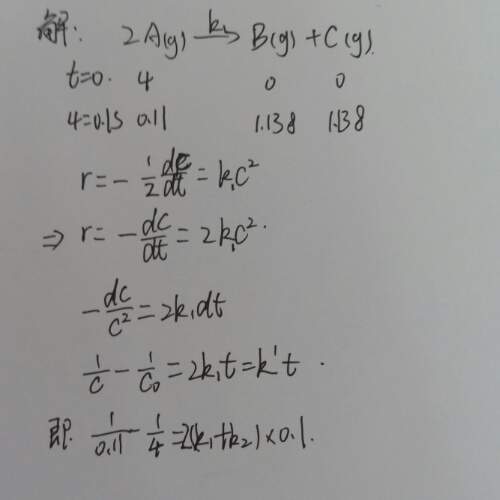 解: 2A(g) —k₁→ B(g) + C(g).
t=0. 4 0 0
4=0.15 0.11 1.138 1.138
r = - 1/2 dc/dt = k₁c²
⇒ r = - dc/dt = 2k₁c².
- dc/c² = 2k₁dt
1/c - 1/c₀ = 2k₁t = k't.
即. 1/0.11 - 1/4 = 2(k₁+k₂)×0.1.